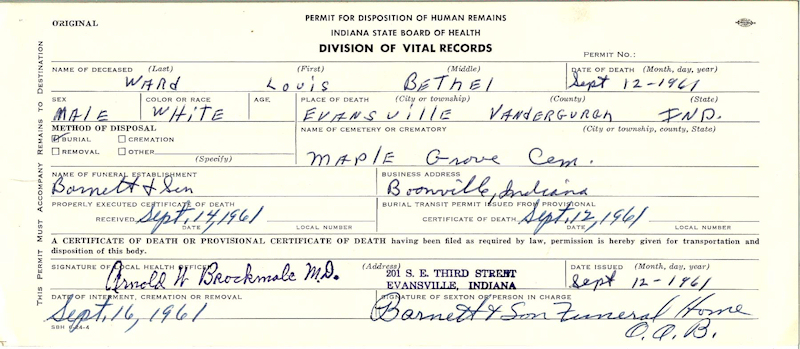 ORIGINAL
PERMIT FOR DISPOSITION OF HUMAN REMAINS
INDIANA STATE BOARD OF HEALTH
DIVISION OF VITAL RECORDS
PERMIT NO.:
THIS PERMIT MUST ACCOMPANY REMAINS TO DESTINATION
NAME OF DECEASED (Last) (First) (Middle) DATE OF DEATH (Month, day, year)
WARD LOUIS BETHEL Sept 12-1961
SEX COLOR OR RACE AGE PLACE OF DEATH (City or township) (County) (State)
MALE WHITE EVANSVILLE VANDERGURGH IND.
METHOD OF DISPOSAL NAME OF CEMETERY OR CREMATORY (City or township, county, State)
BURIAL CREMATION
REMOVAL OTHER (Specify)
MAPLE Grove Cem.
NAME OF FUNERAL ESTABLISHMENT BUSINESS ADDRESS
Barnett & Son Boonville, Indiana
PROPERLY EXECUTED CERTIFICATE OF DEATH BURIAL TRANSIT PERMIT ISSUED FROM PROVISIONAL
RECEIVED Sept. 14, 1961 CERTIFICATE OF DEATH Sept. 12, 1961
DATE LOCAL NUMBER DATE LOCAL NUMBER
A CERTIFICATE OF DEATH OR PROVISIONAL CERTIFICATE OF DEATH having been filed as required by law, permission is hereby given for transportation and
disposition of this body.
SIGNATURE OF LOCAL HEALTH OFFICER (Address) DATE ISSUED (Month, day, year)
Arnold W Brockmole M.D. 201 S. E. THIRD STREET
EVANSVILLE, INDIANA Sept 12-1961
DATE OF INTERMENT, CREMATION OR REMOVAL SIGNATURE OF SEXTON OR PERSON IN CHARGE
Sept. 16, 1961 Barnett & Son Funeral Home
O.A.B.
SBH